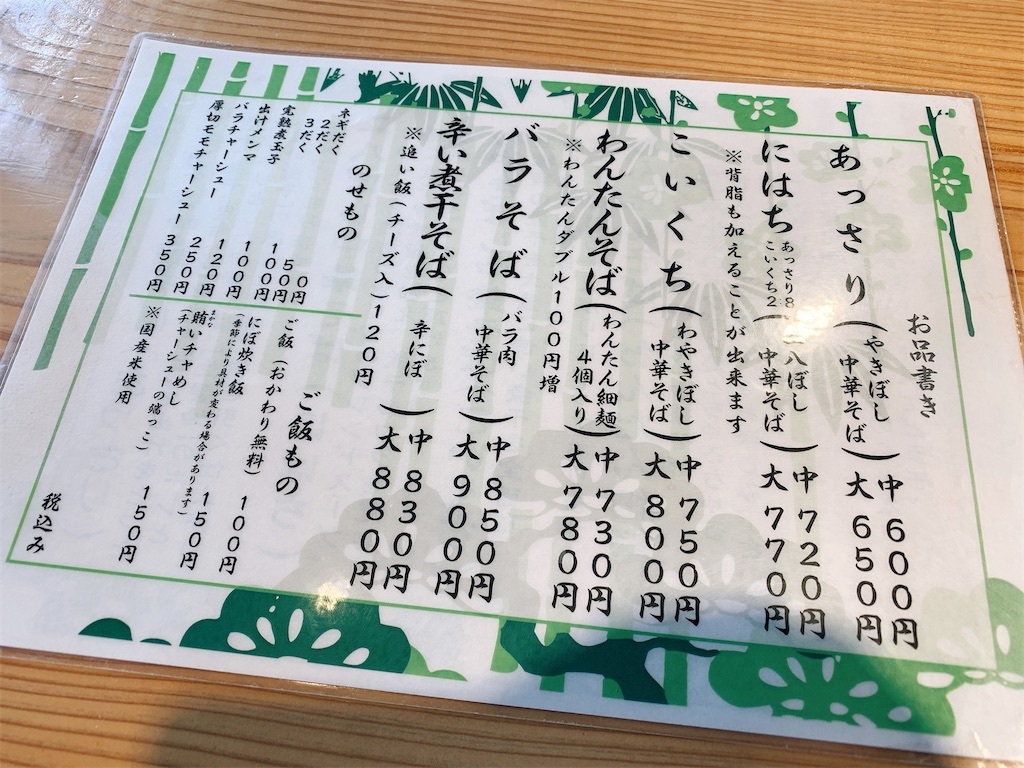 お品書き
あっさり(やきぼし中華そば)中 600円
大 650円
にはち あっさり8こいくち2(八ぼし中華そば)中 720円
大 770円
※背脂も加えることが出来ます
こいくち(わやきぼし中華そば)中 750円
大 800円
わんたんそば(わんたん細麺4個入り)中 730円
大 780円
※わんたんダブル100円増
バラそば(バラ肉中華そば)中 850円
大 900円
辛い煮干そば(辛にぼ)中 830円
大 880円
※追い飯(チーズ入)120円
のせもの
ネギだく 0円
2だく 50円
3だく 100円
完熟煮玉子 100円
出汁メンマ 120円
バラチャーシュー 250円
厚切モモチャーシュー 350円
ご飯もの
ご飯(おかわり無料) 100円
にぼ炊き飯
(季節により具材が変わる場合があります) 150円
まかな
賄いチャめし
(チャーシューの端っこ) 150円
※国産米使用
税込み